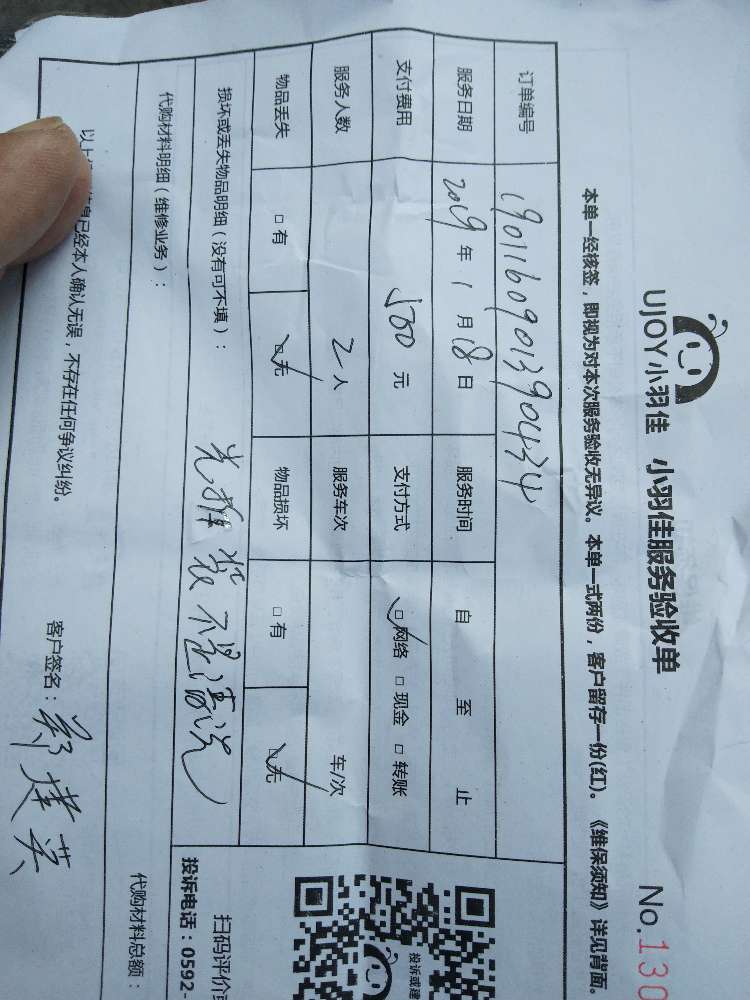 UJOY小羽佳 小羽佳服务验收单
No.130
本单一经核签，即视为对本次服务验收无异议。本单一式两份，客户留存一份(红)。《维保须知》详见背面。
订单编号 1901160901390434
服务日期 2019 年 1 月 18 日 服务时间 自 至 止
支付费用 500 元 支付方式 □网络 □现金 □转账
服务人数 2 人 服务车次 车/次
物品丢失 □有 □无 物品损坏 □有 □无
损坏或丢失物品明细（没有可不填）：
装不是清洗
代购材料明细（维修业务）：
代购材料总额：
以上 息已经本人确认无误，不存在任何争议纠纷。
客户签名：郑建英
投诉或建
扫码评价
投诉电话：0592-